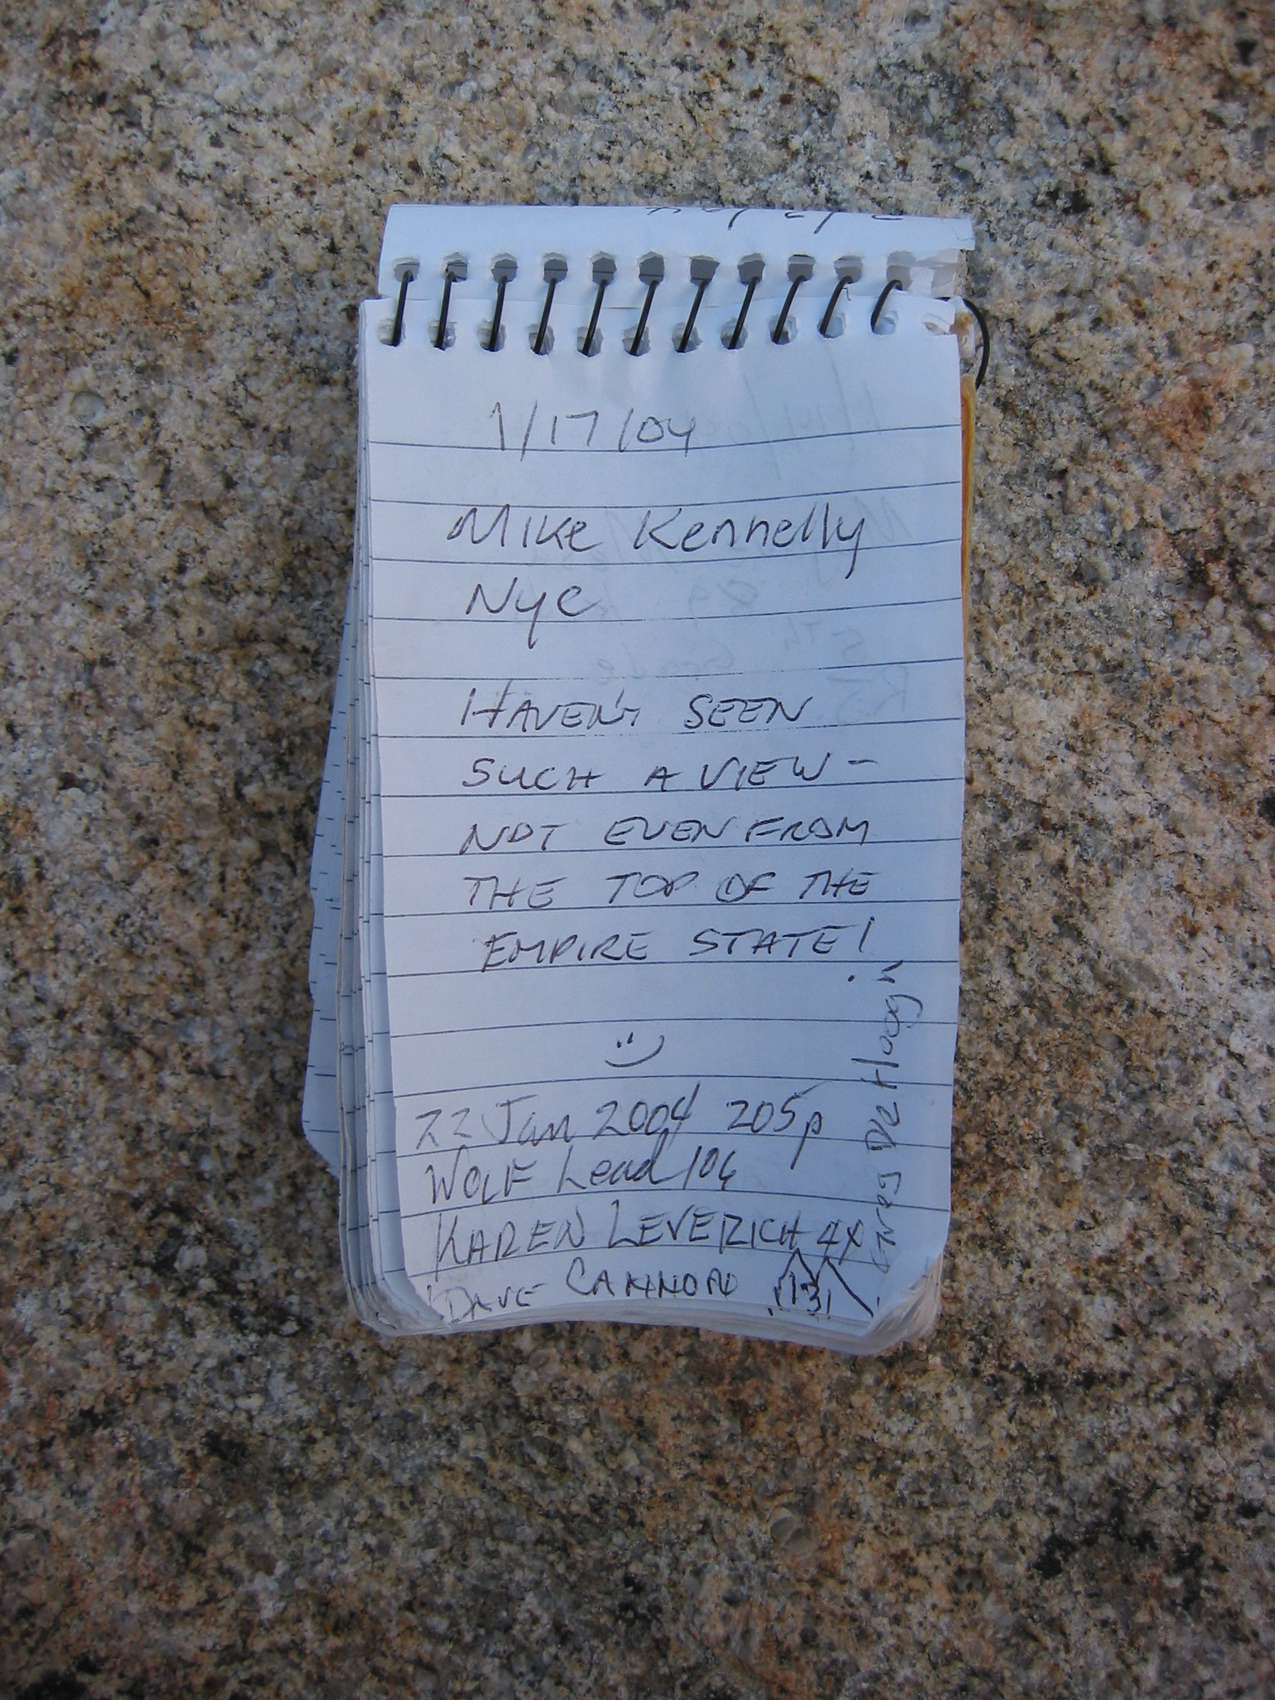 1/17/04
Mike Kennelly
NYC
HAVEN'T SEEN
SUCH A VIEW -
NOT EVEN FROM
THE TOP OF THE
EMPIRE STATE!
22 Jan 2004 205p
WOLF Lead 106
KAREN LEVERICH 4X
DAVE CANNON 131